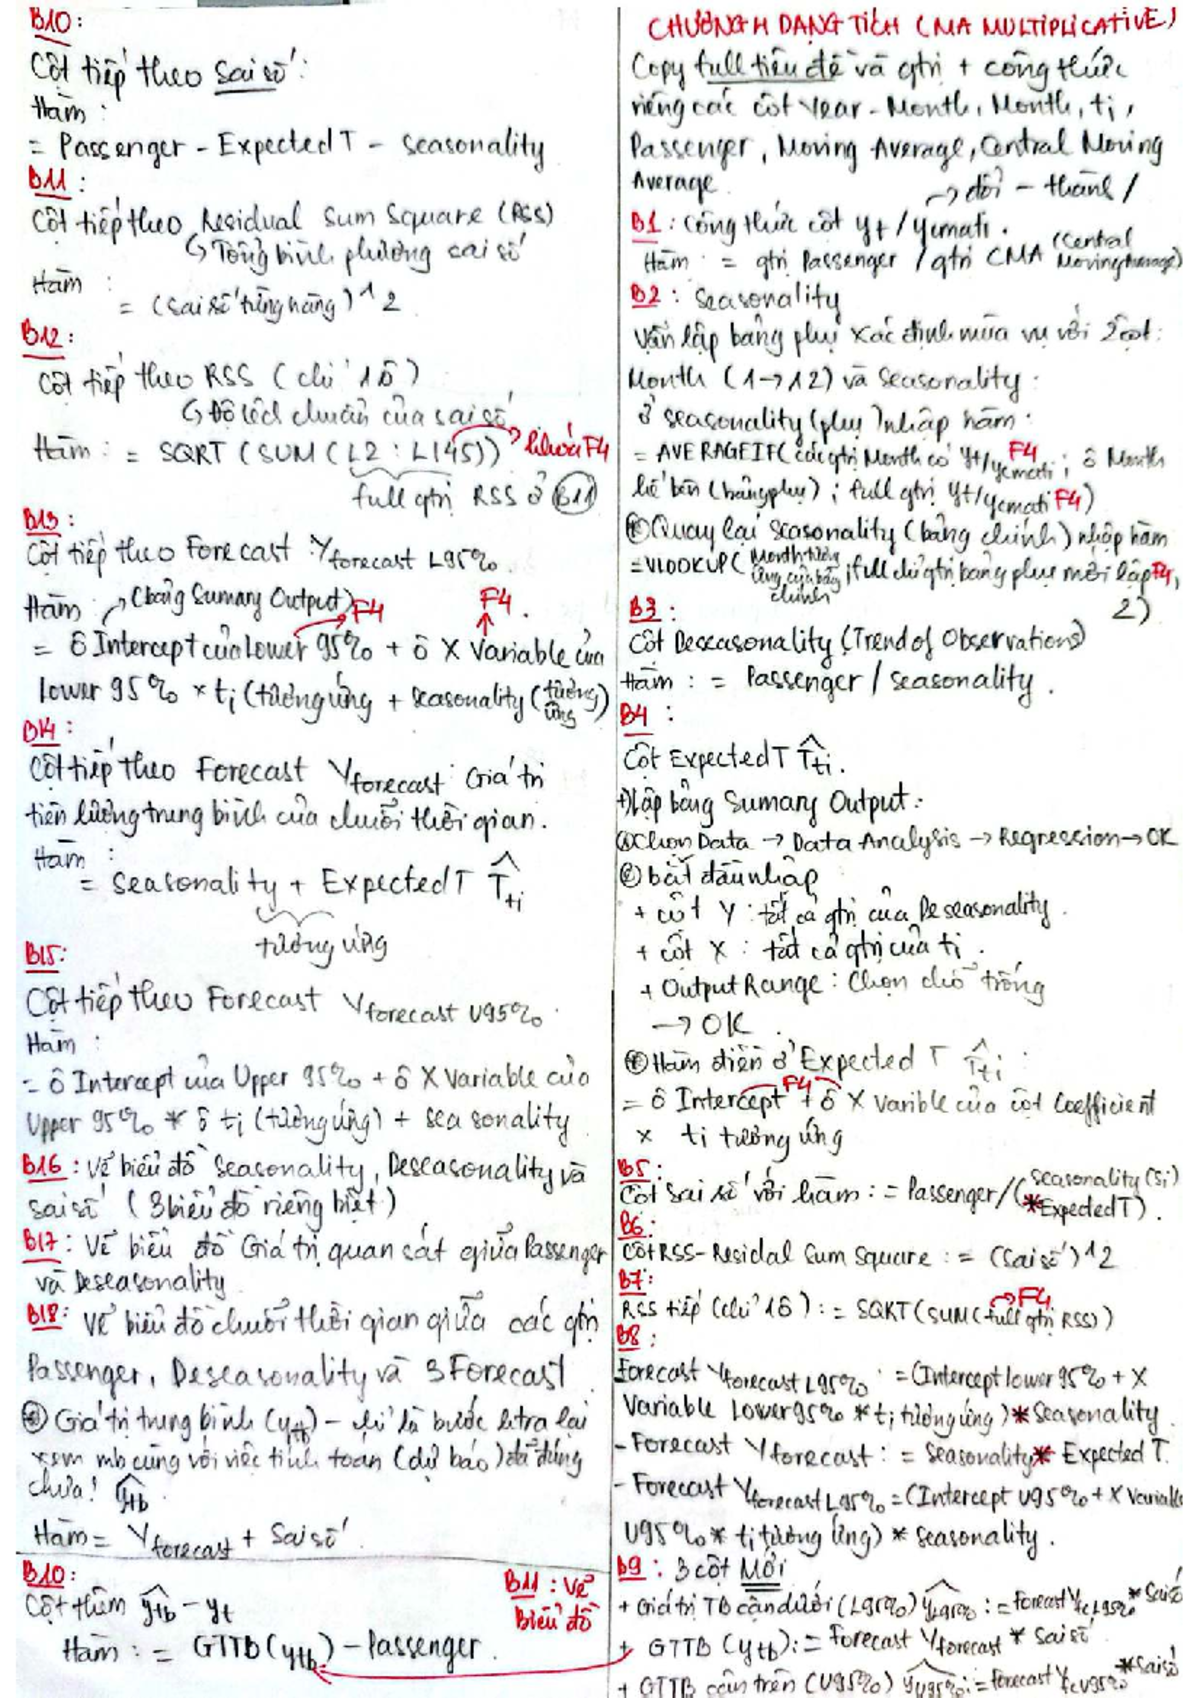 B10:
Cột tiếp theo Sai số:
Hàm:
= Passenger - Expected T - Seasonality
B11:
Cột tiếp theo Residual Sum Square (RSS)
↳ Tổng bình phương sai số
Hàm:
= (Sai số từng hàng)^2
B12:
Cột tiếp theo RSS (chỉ 1 ô)
↳ Độ lệch chuẩn của sai số
Hàm: = SQRT (SUM (L2 : L145)) → khóa F4
full gtrị RSS ở B11
B13:
Cột tiếp theo Forecast Yforecast L95%
Hàm: (bảng Sumary Output) F4 F4.
= ô Intercept của Lower 95% + ô X Variable của
lower 95% × ti (tương ứng + seasonality (tương ứng)
B14:
Cột tiếp theo Forecast Yforecast: Giá trị
tiên lượng trung bình của chuỗi thời gian.
Hàm:
= Seasonality + Expected T T̂ti
tương ứng
B15:
Cột tiếp theo Forecast Yforecast U95%.
Hàm:
= ô Intercept của Upper 95% + ô X Variable của
Upper 95% * ô ti (tương ứng) + seasonality
B16: Vẽ biểu đồ Seasonality, Deseasonality và
sai số (3 biểu đồ riêng biệt)
B17: Vẽ biểu đồ Giá trị quan sát giữa Passenger
và Deseasonality
B18: Vẽ biểu đồ chuỗi thời gian giữa các gtrị
Passenger, Deseasonality và 3 Forecast
Giá trị trung bình (ytb) - là bước ktra lại
xem mb cũng với việc tính toán (dự báo) đã đúng
chưa! ŷtb
Hàm = Yforecast + Sai số
B10:
Cột thêm ŷtb - yt
Hàm: = GTTB (ytb) - Passenger.
B11: Vẽ
Biểu đồ
CHƯƠNG 4 DẠNG TÍCH (MA MULTIPLICATIVE)
Copy full tiêu đề và gtrị + công thức
riêng các cột Year - Month, Month, ti,
Passenger, Moving Average, Central Moving
Average.
→ đổi - thành /
B1: Công thức cột yt/ycmati.
Hàm: = gtrị Passenger / gtrị CMA (Central Moving Average)
B2: Seasonality
Vẫn lập bảng phụ xác định mùa vụ với 2 cột:
Month (1→12) và Seasonality:
Ở seasonality (phụ) nhập hàm:
= AVERAGEIF( các gtrị Month có yt/ycmati F4; ô Month
kế bên (bảng phụ); full gtrị yt/ycmati F4)
Quay lại Seasonality (bảng chính) nhập hàm
= VLOOKUP( Month tương ứng của bảng chính; full chữ gtrị bảng phụ mới lập F4,
2)
B3:
Cột Deseasonality (Trend of Observations)
Hàm: = Passenger / seasonality.
B4:
Cột Expected T T̂ti.
+) Lập bảng Sumary Output:
① Chọn Data → Data Analysis → Regression → OK
② bắt đầu nhập
+ cột Y: tất cả gtrị của Deseasonality.
+ cột X: tất cả gtrị của ti.
+ Output Range: Chọn chỗ trống
→ OK.
Hàm điền ở Expected T T̂ti:
F4
= ô Intercept + ô X Varible của cột Coefficient
× ti tương ứng
B5:
Cột sai số với hàm: = Passenger/(seasonality (Si) * Expected T).
B6:
Cột RSS - Residal Sum Square: = (Sai số)^2
B7:
RSS tiếp (chỉ 1 ô): = SQRT (SUM (full gtrị RSS)) F4
B8:
Forecast Yforecast L95%: = (Intercept lower 95% + X
Variable Lower 95% * ti tương ứng) * Seasonality.
- Forecast Yforecast: = Seasonality * Expected T.
- Forecast Yforecast L95% = (Intercept U95% + X Variable
U95% * ti tương ứng) * Seasonality.
B9: 3 cột Mới
+ Giá trị TB cận dưới (L95%) ŷL95%: = Forecast YfcL95% * Sai số
+ GTTB (ytb): = Forecast Yforecast * Sai số
+ GTTB cận trên (U95%) ŷU95%: = Forecast YfcU95% * Sai số